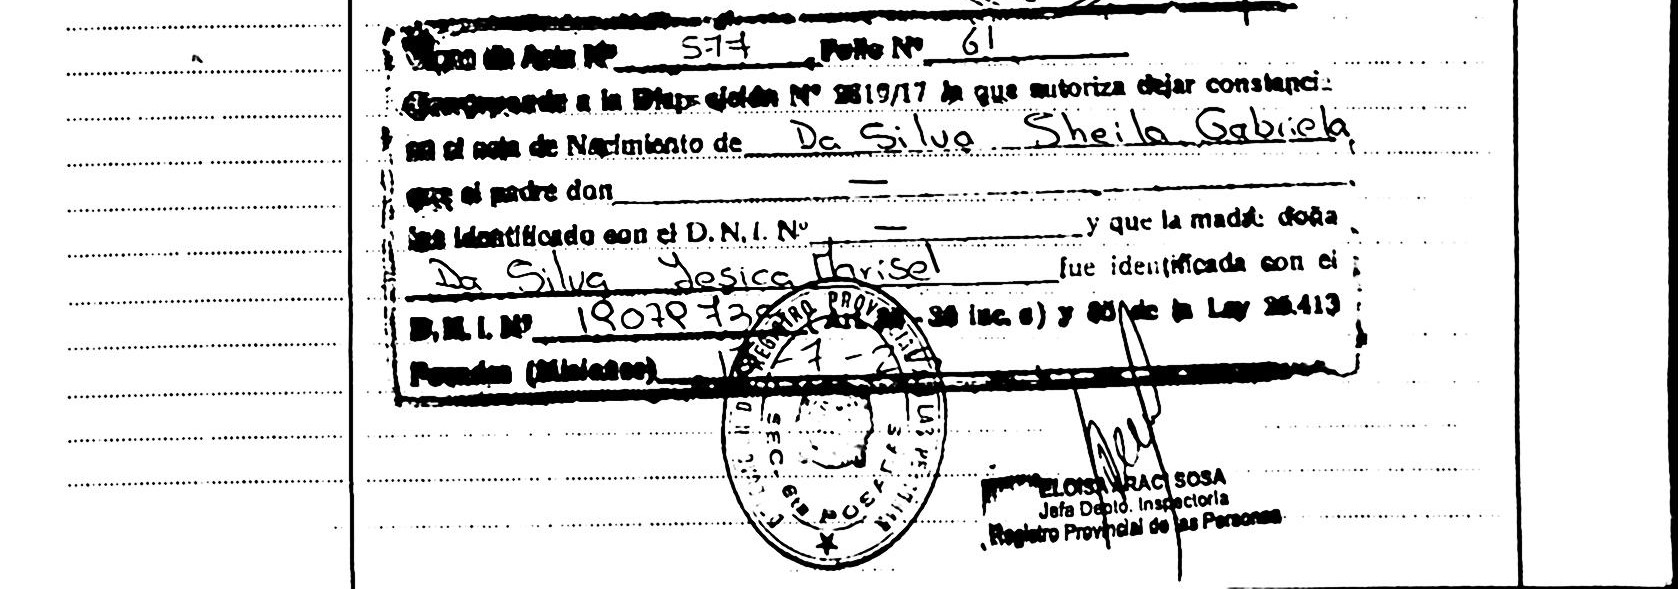 de Acta Nº 577 Folio Nº 61
Corresponde a la Disposición Nº 2819/17 la que autoriza dejar constanci
en el acta de Nacimiento de Da Silva Sheila Gabriela
que el padre don —
fue identificado con el D.N.I. Nº — y que la madre doña
Da Silva Yesica Marisel fue identificada con el
D.N.I. Nº (Art. - 36 inc. c) y de la Ley 26.413
Posadas (Misiones) - 7 -
REGISTRO PROVINCIAL DE LAS PERSONAS
SEC. 6ta POSADAS
ELOISA ARACI SOSA
Jefa Depto. Inspectoria
Registro Provincial de las Personas